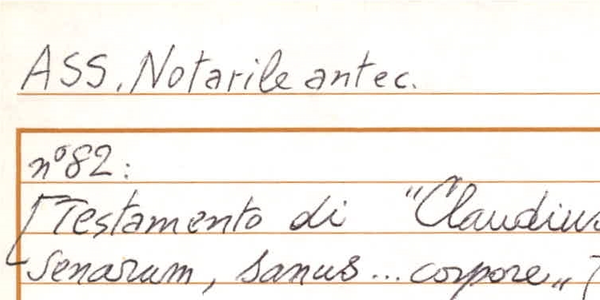 ASS. Notarile antec.
n°82:
[Testamento di "Claudius
Senarum, sanus... corpore„ [